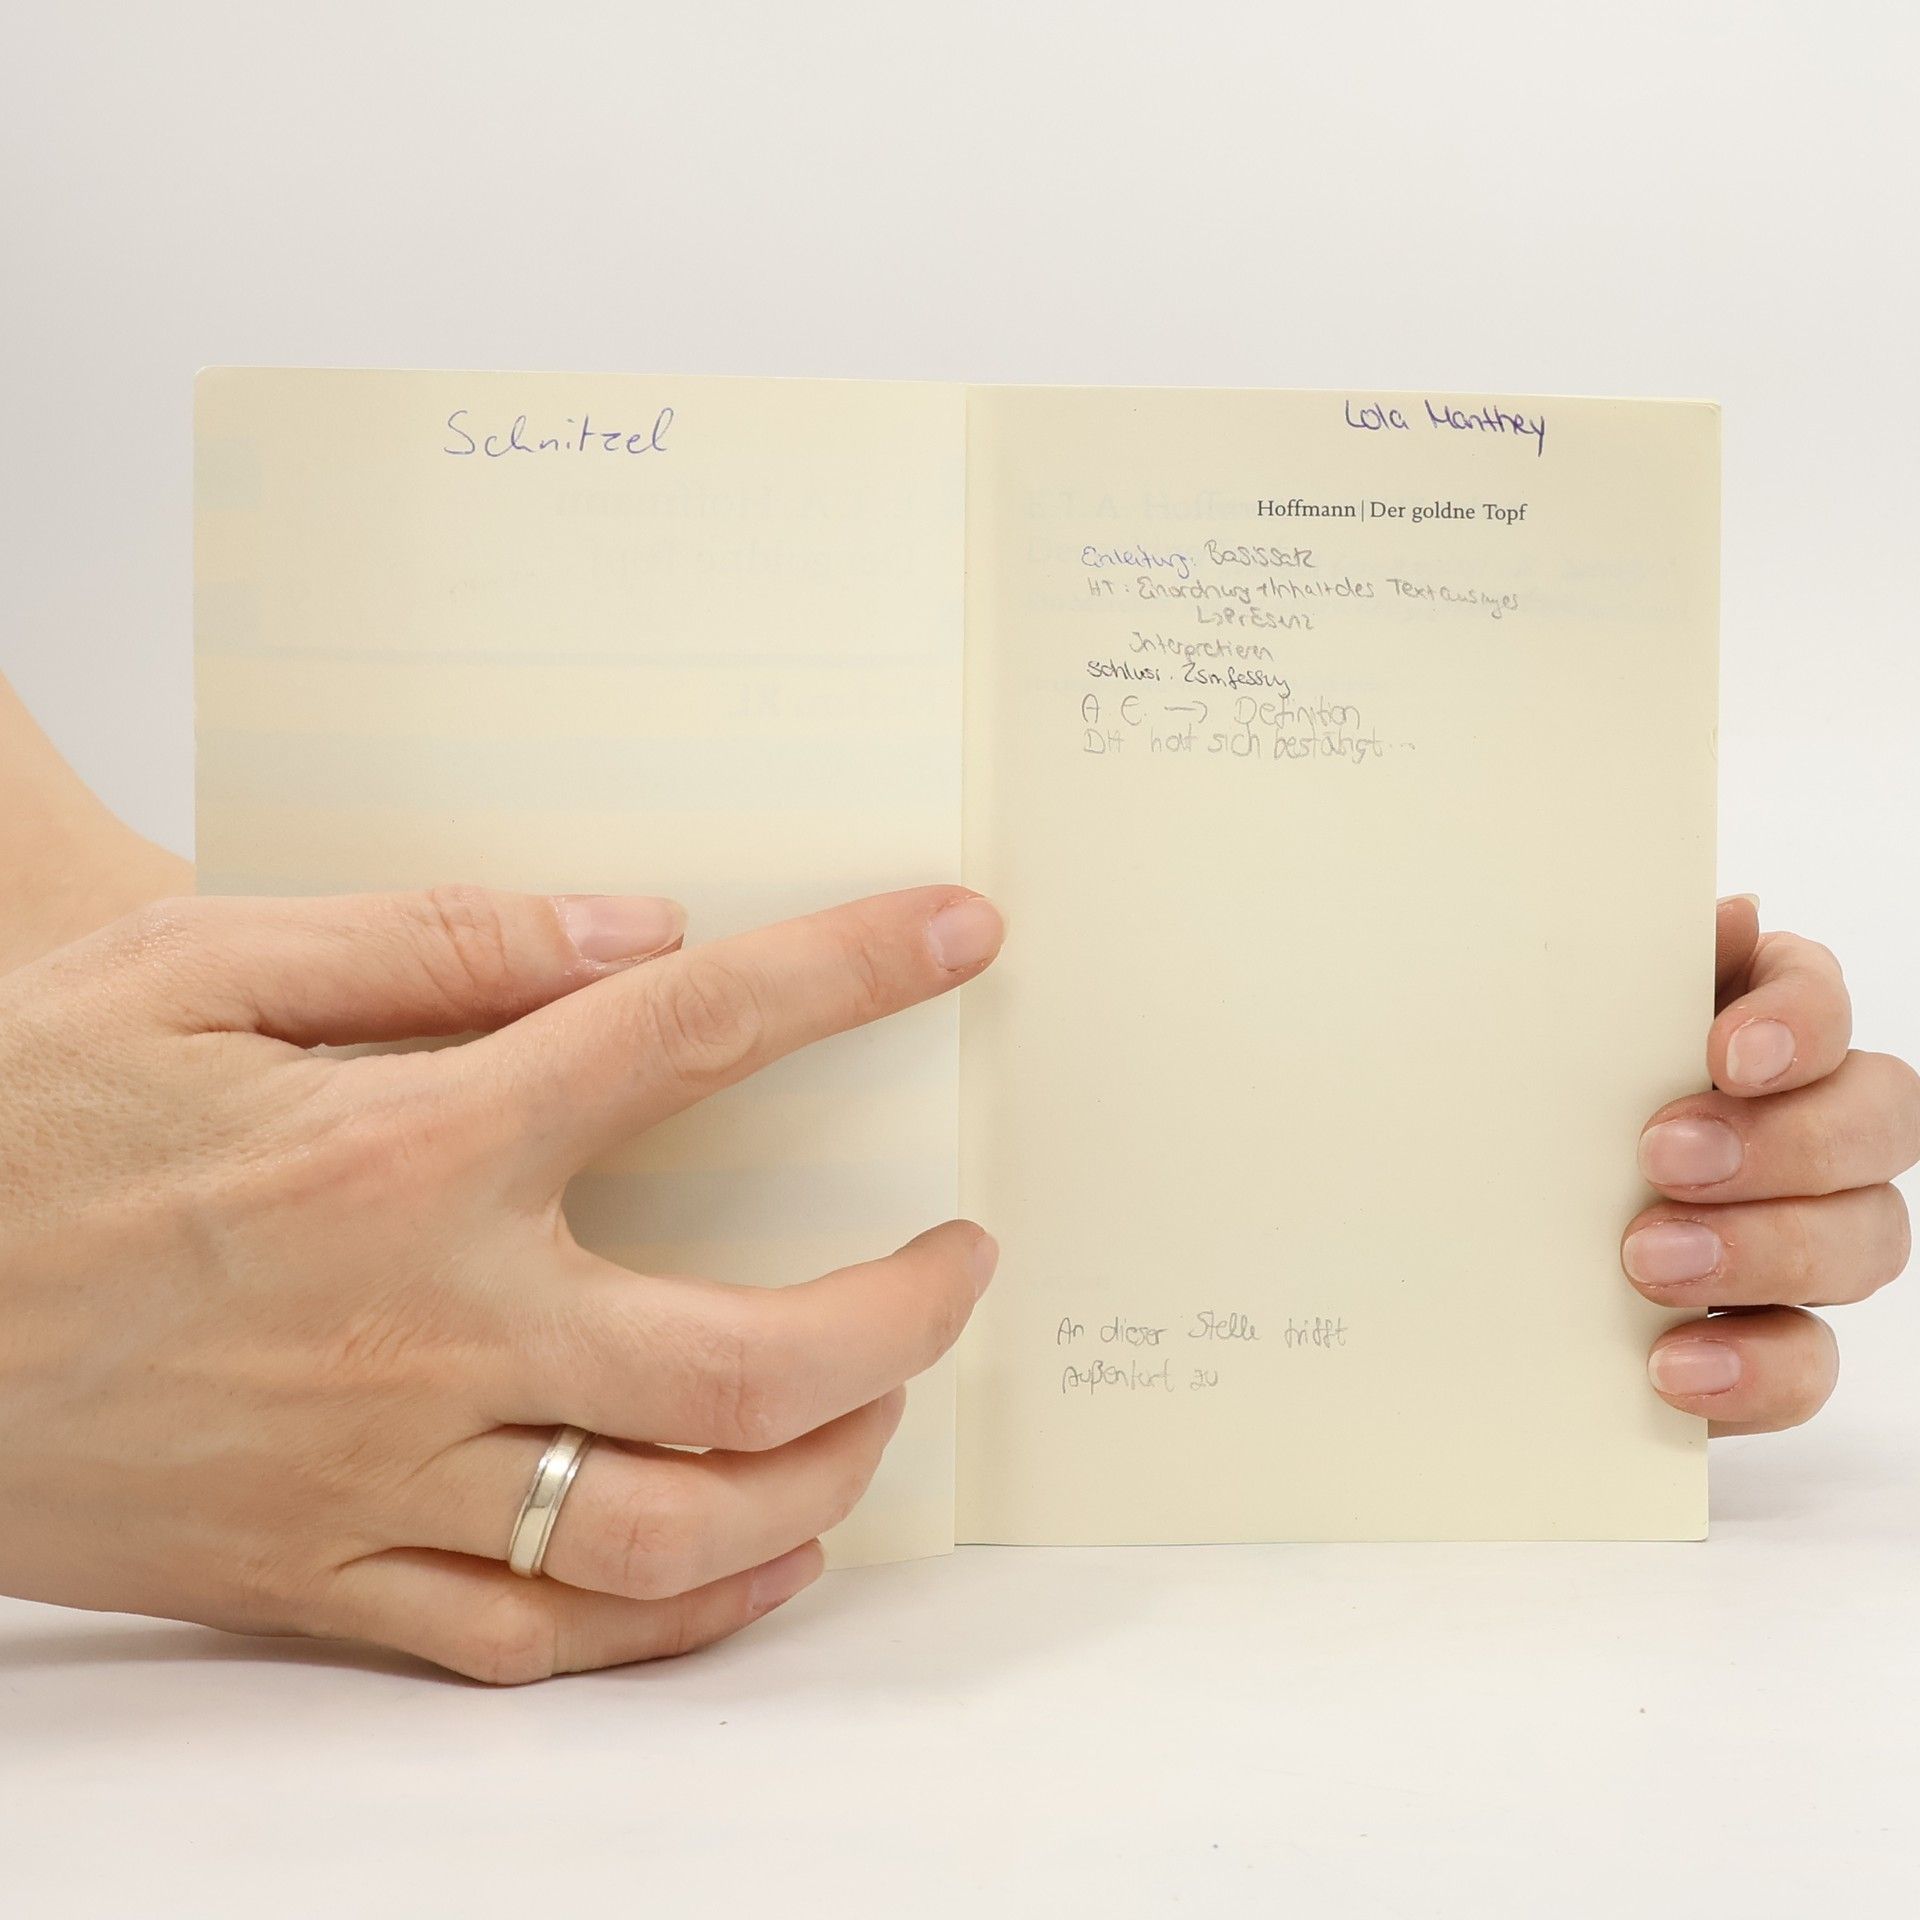 Schnitzel
Lola Manthey
Hoffmann | Der goldne Topf
Einleitung: Basissatz
HT: Einordnung + Inhalt des Textauszuges
↳ Präsenz
Interpretieren
Schluss: Zsmfessug
A. E. → Definition
DH hat sich bestätigt...
An dieser Stelle trifft
zu